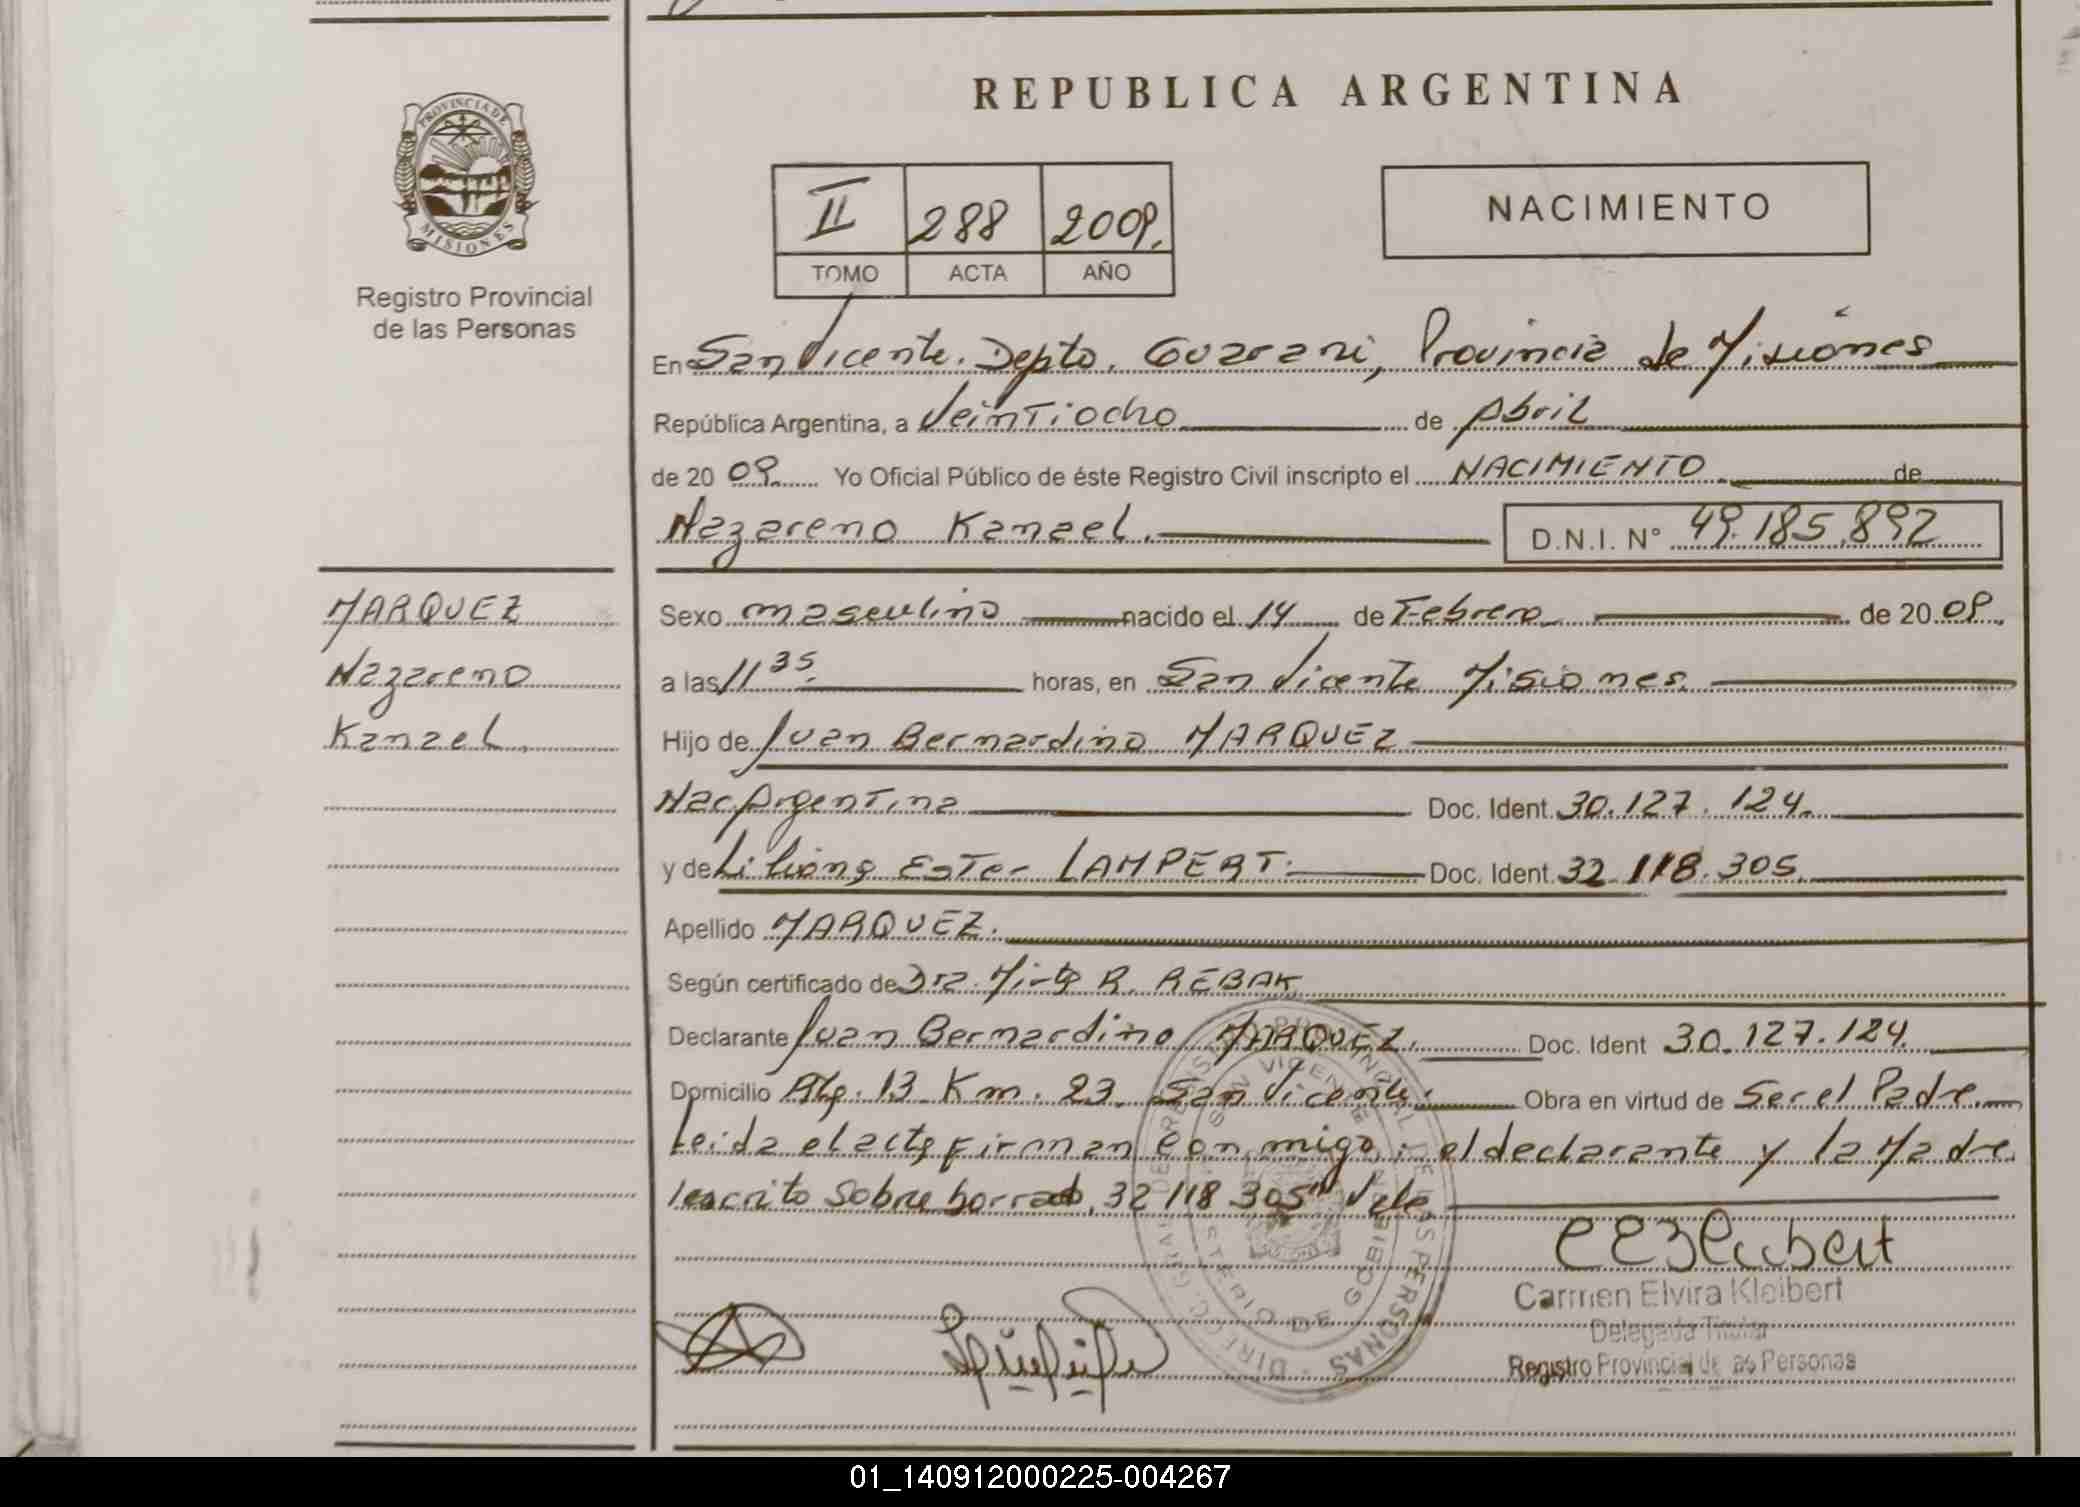 REPUBLICA ARGENTINA
PROVINCIA DE
MISIONES
Registro Provincial
de las Personas
II 288 2009.
TOMO ACTA AÑO
NACIMIENTO
En San Vicente. Depto. Guarani, Provincia de Misiones
República Argentina, a Veintiocho de Abril
de 20 09. Yo Oficial Público de éste Registro Civil inscripto el NACIMIENTO de
Nazareno Kanael. D.N.I. N° 49.185.892
MARQUEZ
Nazareno
Kanael.
Sexo masculino nacido el 14 de Febrero de 20 09.
a las 11 35. horas, en San Vicente Misiones.
Hijo de Juan Bernardino MARQUEZ
Nac. Argentina Doc. Ident. 30.127.124.
y de Liliana Ester LAMPERT. Doc. Ident. 32.118.305.
Apellido MARQUEZ.
Según certificado de Dra. Mirta R. REBAK
Declarante Juan Bernardino MARQUEZ. Doc. Ident 30.127.124.
Domicilio Km. 23. San Vicente. Obra en virtud de Ser el Padre.
Leida el acta firman conmigo: el declarante y la Madre.
escrito sobre borrado, 32 118 305" Vale
SAN VICENTE
MINISTERIO DE GOBIERNO
Carmen Elvira Kleibert
Delegada Titular
Registro Provincial de las Personas
01_140912000225-004267